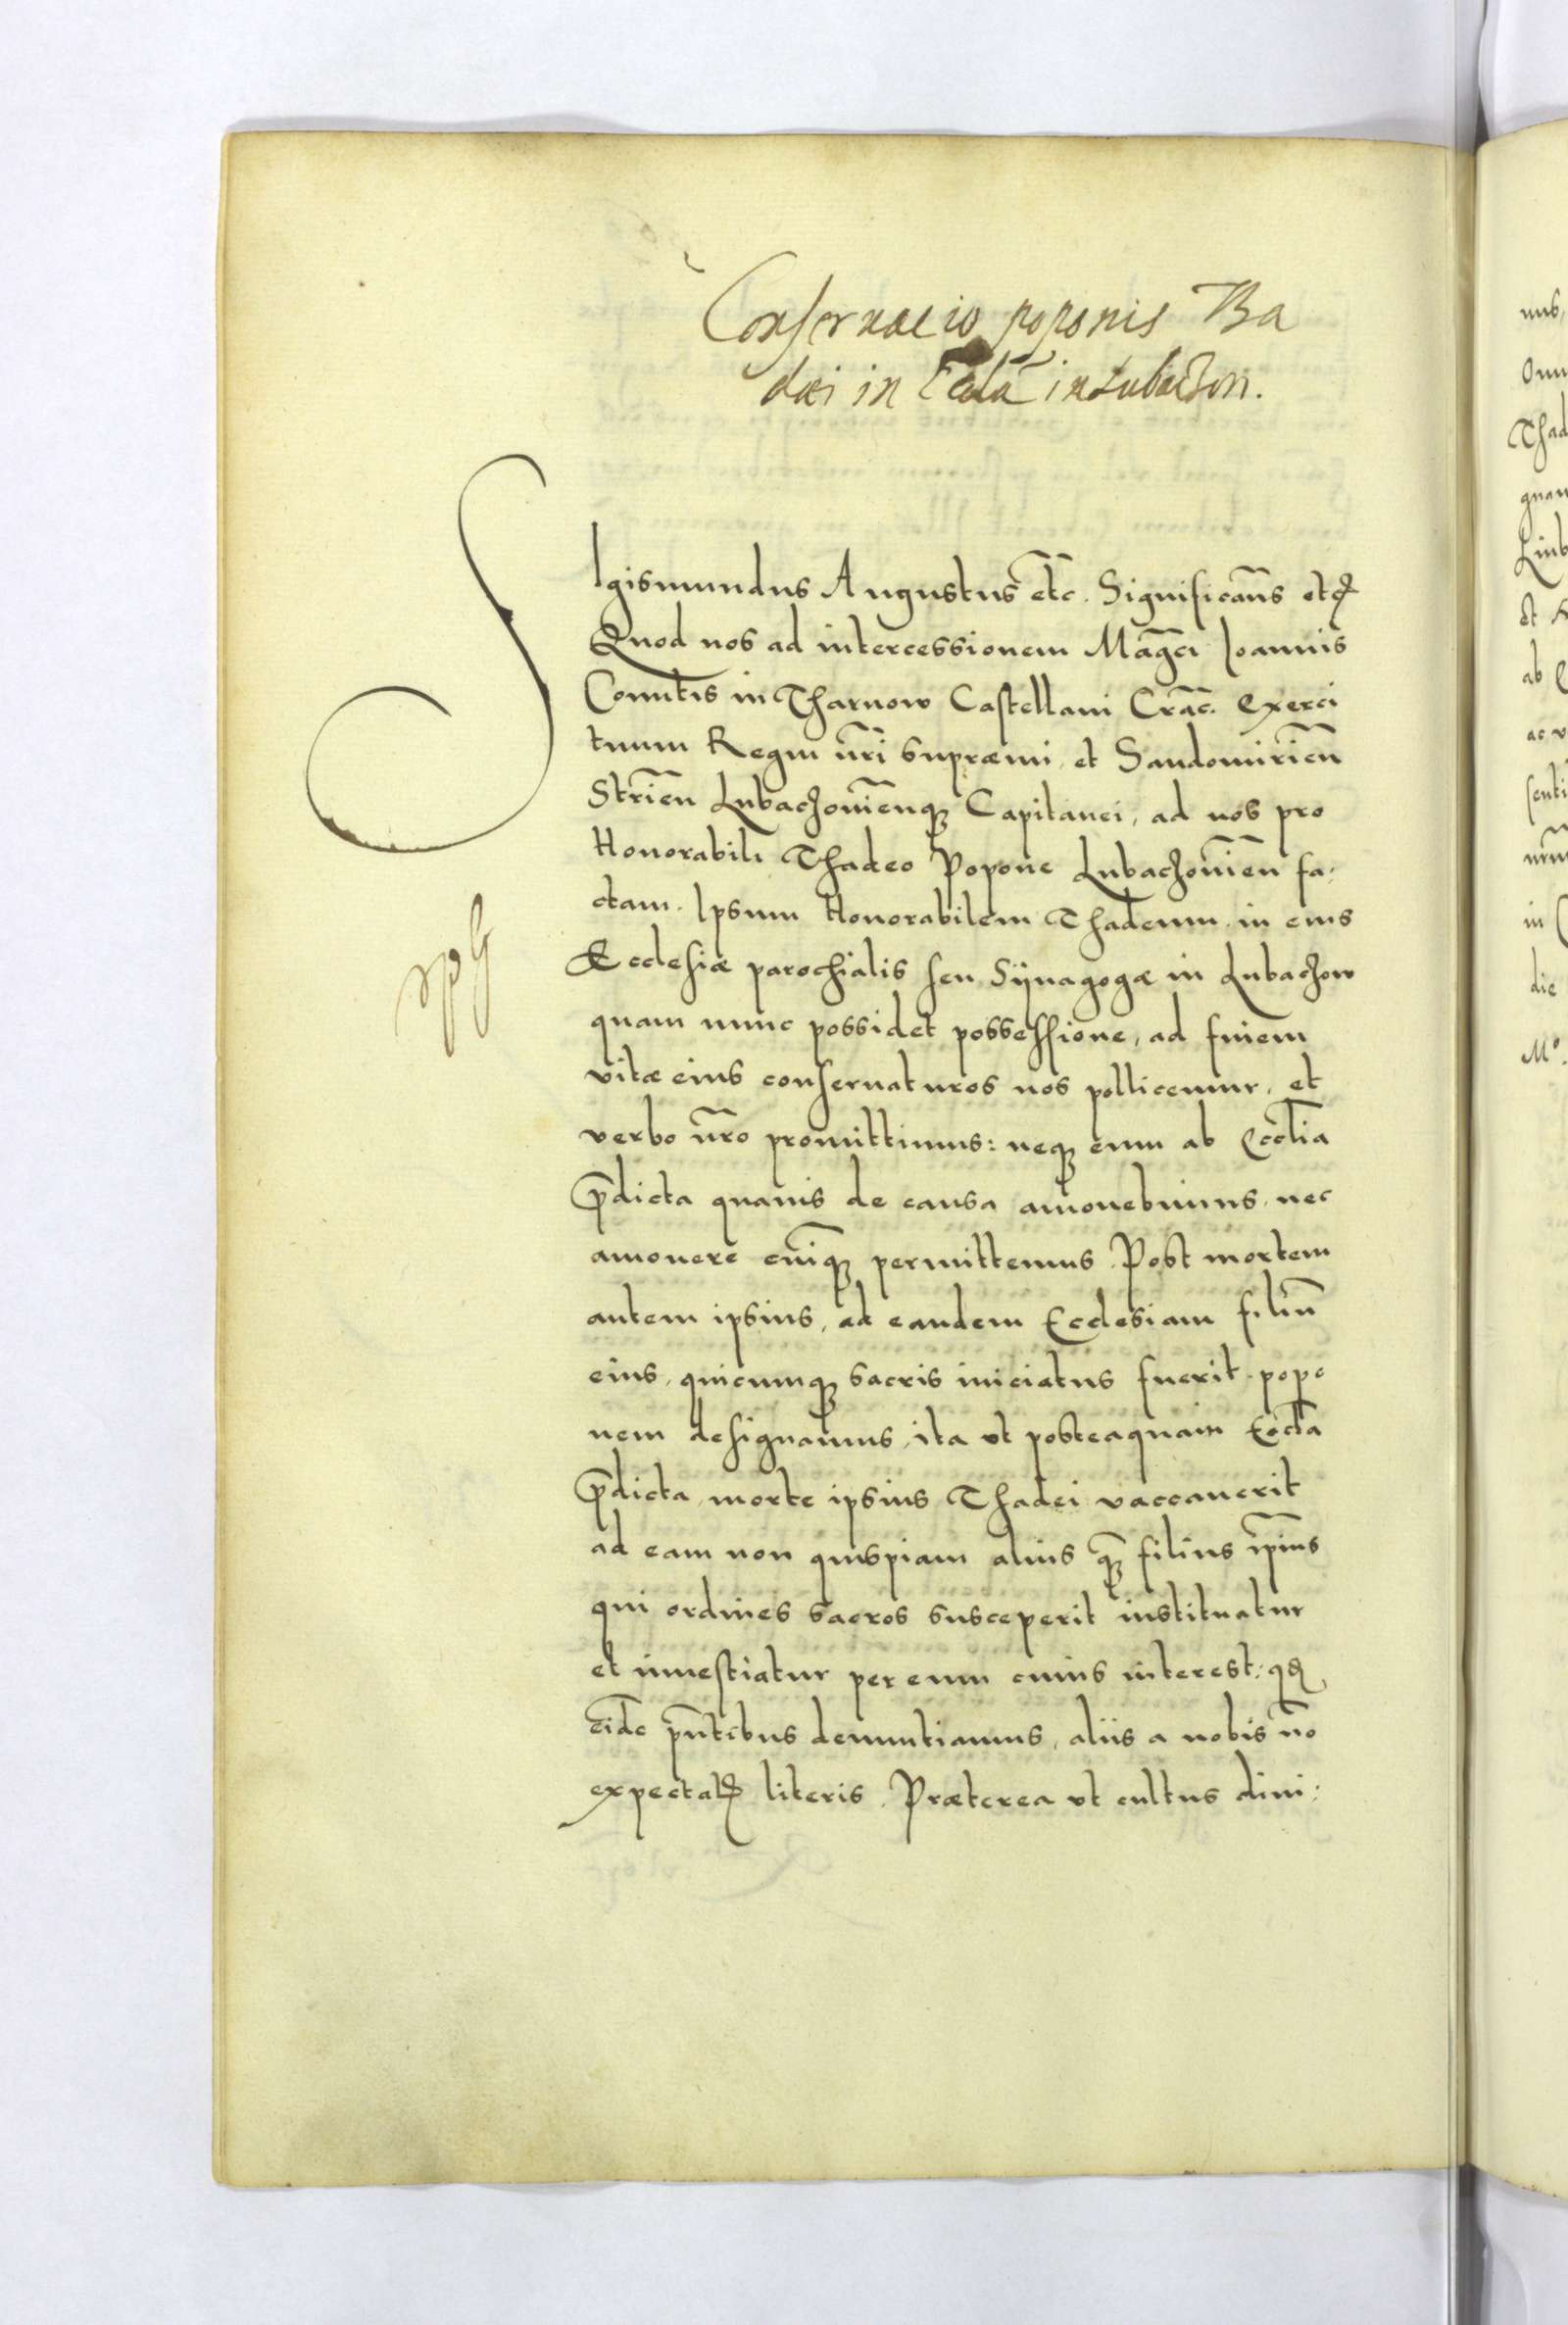 Conservacio poponis Ba
dei in Eccla in Lubaczow.
Sigismundus Augustus etc. Significam̃s etc̃
Quod nos ad intercessionem Mag̃ci Ioannis
Comitis in Tharnow Castellani Crac̃. Exerci
tuum Regni nr̃i supræmi, et Sandomirien̄
Strien̄ Lubaczouien̄q̃ Capitanei, ad nos pro
Honorabili Thadeo Popone Lubaczouien̄ fa:
ctam. Ipsum Honorabilem Thadeum in eius
Ecclesiæ parochialis seu Sÿnagogæ in Lubaczow
quam nunc possidet possessione, ad finem
vitæ eius conseruaturos nos pollicemur, et
verbo nr̃o promittimus: neq̃ eum ab Eccl̃ia
p̃dicta quauis de causa amouebimus, nec
amouere cuiq̃ permittemus. Post mortem
autem ipsius, ad eandem Ecclesiam filiũ
eius, quicumq̃ sacris iniciatus fuerit popo
nem designamus, ita vt posteaquam Eccl̃a
p̃dicta, morte ipsius Thadei vaccauerit
ad eam non quispiam alius q̃ filius ip̃ius
qui ordines sacros susceperit instituatur
et inuestiatur per eum cuius interest: qd̃
eid̃ẽ pñtibus denuntiamus, aliis a nobis nõ
expectatis literis. Præterea vt cultus diui: